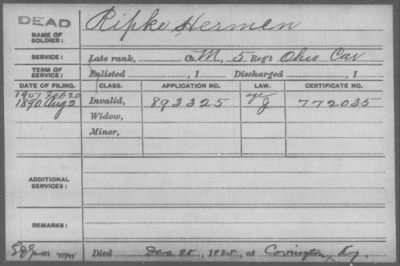 DEAD
NAME OF SOLDIER: Ripke, Hermen
SERVICE: Late rank, Co. M, 5 Reg't Ohio Cav
TERM OF SERVICE: Enlisted , 1 Discharged , 1
DATE OF FILING. CLASS. APPLICATION NO. LAW. CERTIFICATE NO.
1907 Feb 20
1890 Aug 2 Invalid, 893325 g 772035
Widow,
Minor,
ADDITIONAL SERVICES:
REMARKS:
Died Dec 25, at Covington, Ky.